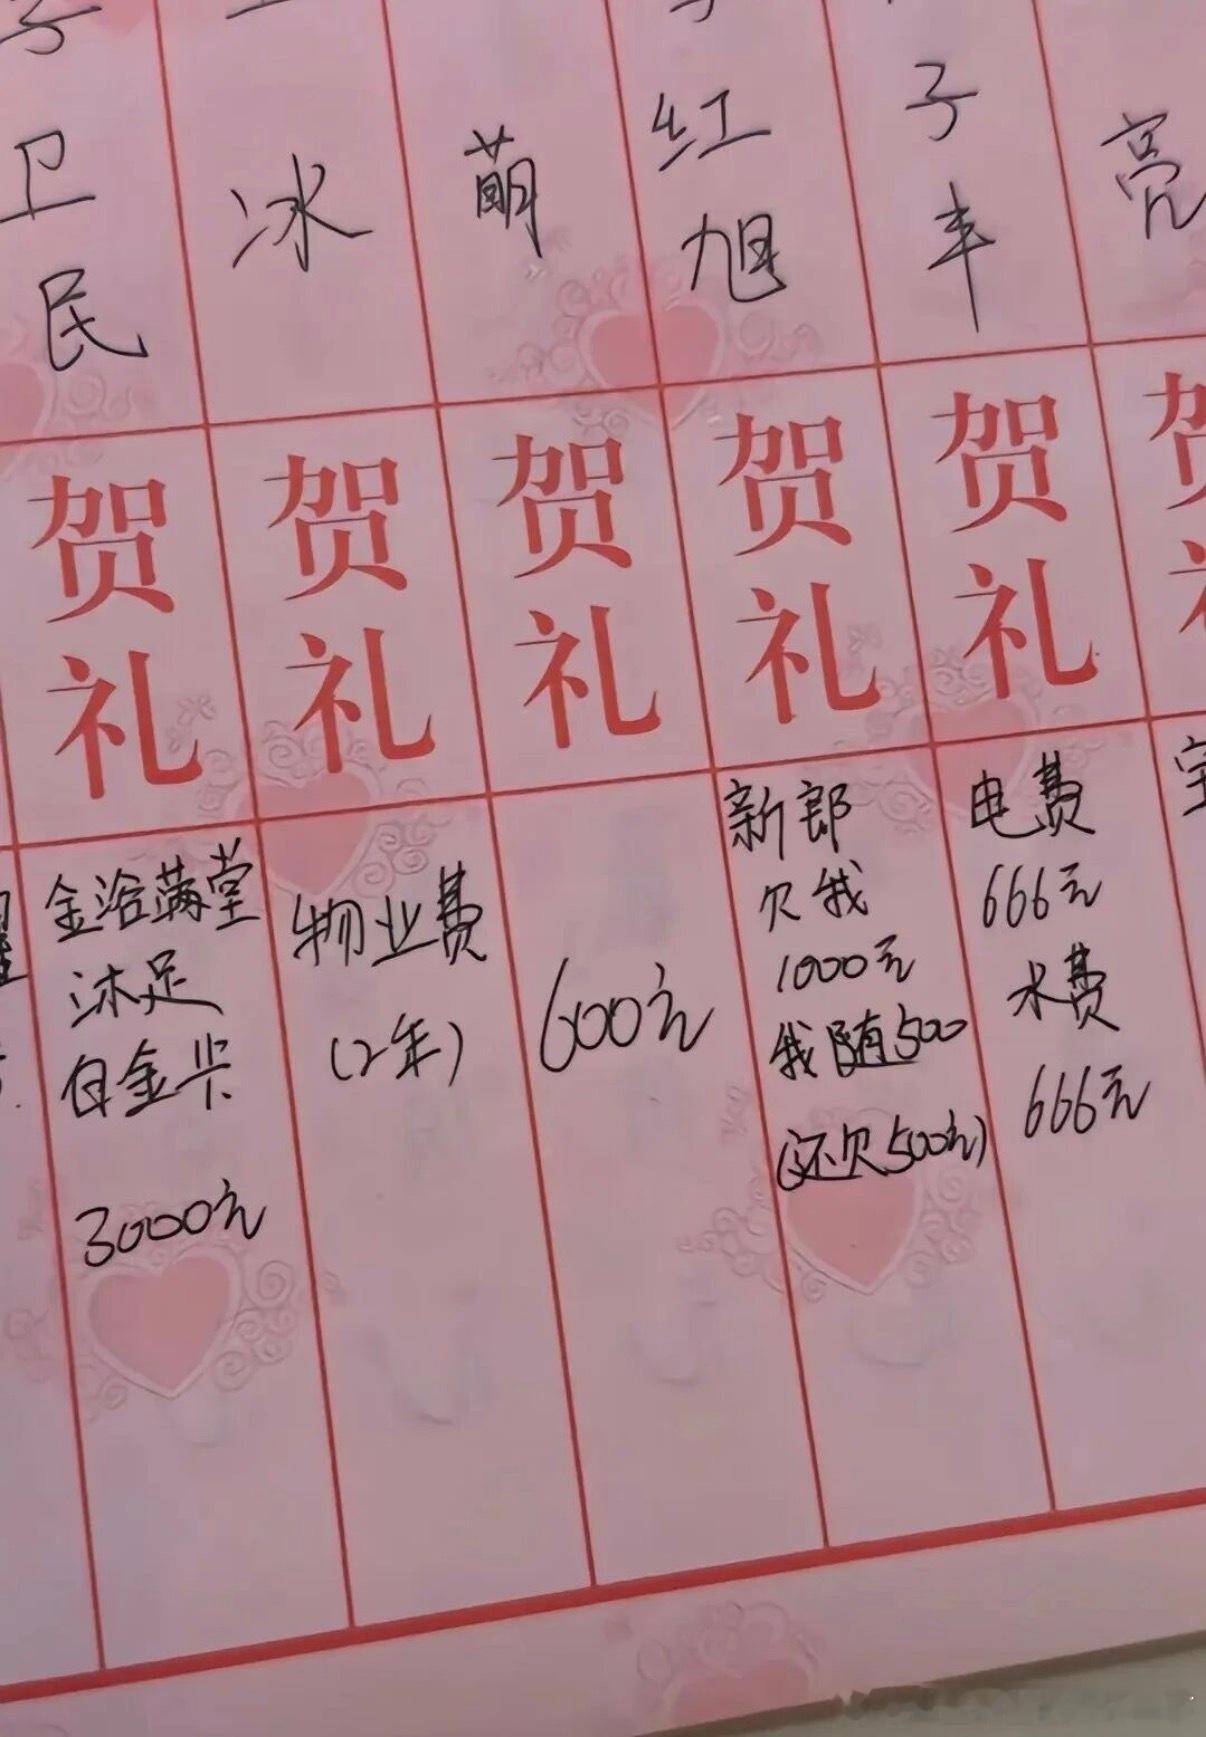 卫民
冰
萌
红旭
子丰
亮
贺礼
贺礼
贺礼
贺礼
贺礼
金浴满堂
沐足
白金卡
3000元
物业费
(2年)
600元
新郎
欠我
1000元
我随500
(还欠500元)
电费
666元
水费
666元